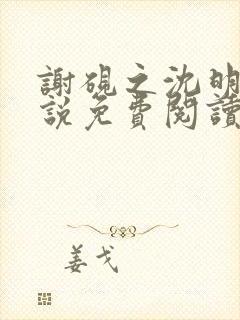 謝硯之沈明
說免費閱讀
姜戈